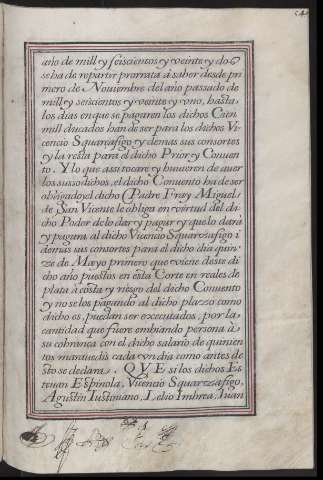 año de mill y seiscientos y veinte y dos
se ha de repartir prorrata á saber desde pri
mero de Nouiembre del año passado de
mill y seiscientos y veinte y vno, hasta
los dias en que se pagaren los dichos Cien
mill ducados han de ser para los dichos Vi
cencio Squarçafigo y demas sus consortes
y la resta para el dicho Prior y Conuen
to. Y lo que assi tocare y huuieren de auer
los susso dichos, el dicho Conuento ha de ser
obligado y el dicho Padre Fray Miguel
de San Vicente le obliga en virtud del di
cho Poder de lo dar y pagar y que lo dará
y pagara al dicho Vicencio Squarzafigo i
demas sus consortes para el dicho dia quin
ze de Mayo primero que viene deste di
cho año puestos en esta Corte en reales de
plata á costa y riesgo del dicho Conuento
y no se los pagando al dicho plazzo como
dicho es, puedan ser executados, por la
cantidad que fuere embiando persona à
su cobrança con el dicho salario de quinien
tos marauedis cada vn dia como antes de
sto se declara. QVE si los dichos Es
teuan Espinola, Vicencio Squarzafigo,
Agustin Iustiniano, Lelio Imbrea, Iuan